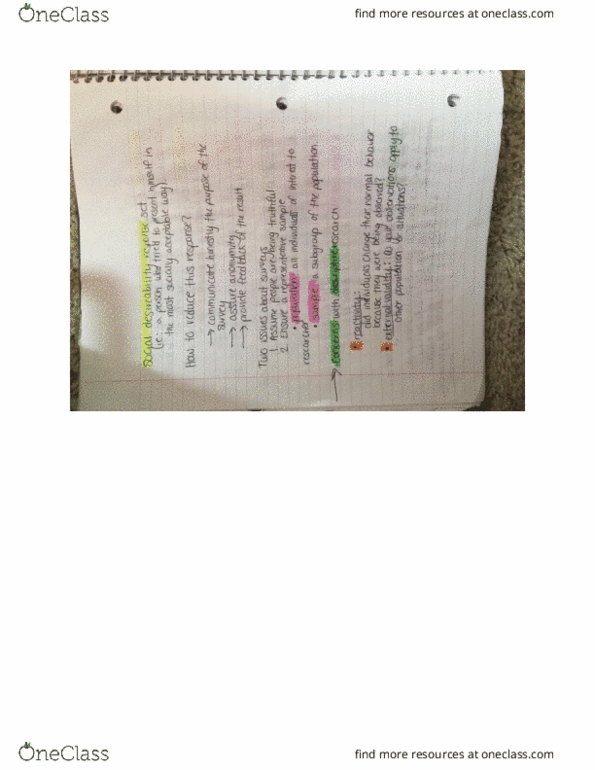 OneClass
find more resources at oneclass.com
social desirability reponse set
(ie: a person who tries to present himself in
the most socially acceptable way)
How to reduce this response?
→ communicate honestly the purpose of the
survey
→ assure anonymity
→ provide feedback of the result
Two issues about surveys
1. Assume people are being truthful
2. Ensure a representative sample
• population all individuals of interest to
researcher
• sample a subgroup of the population
→ concerns with descriptive research
reactivity:
did individuals change their normal behavior
because they were being observed?
external validity: do your observations apply to
other population or situations?
OneClass
find more resources at oneclass.com